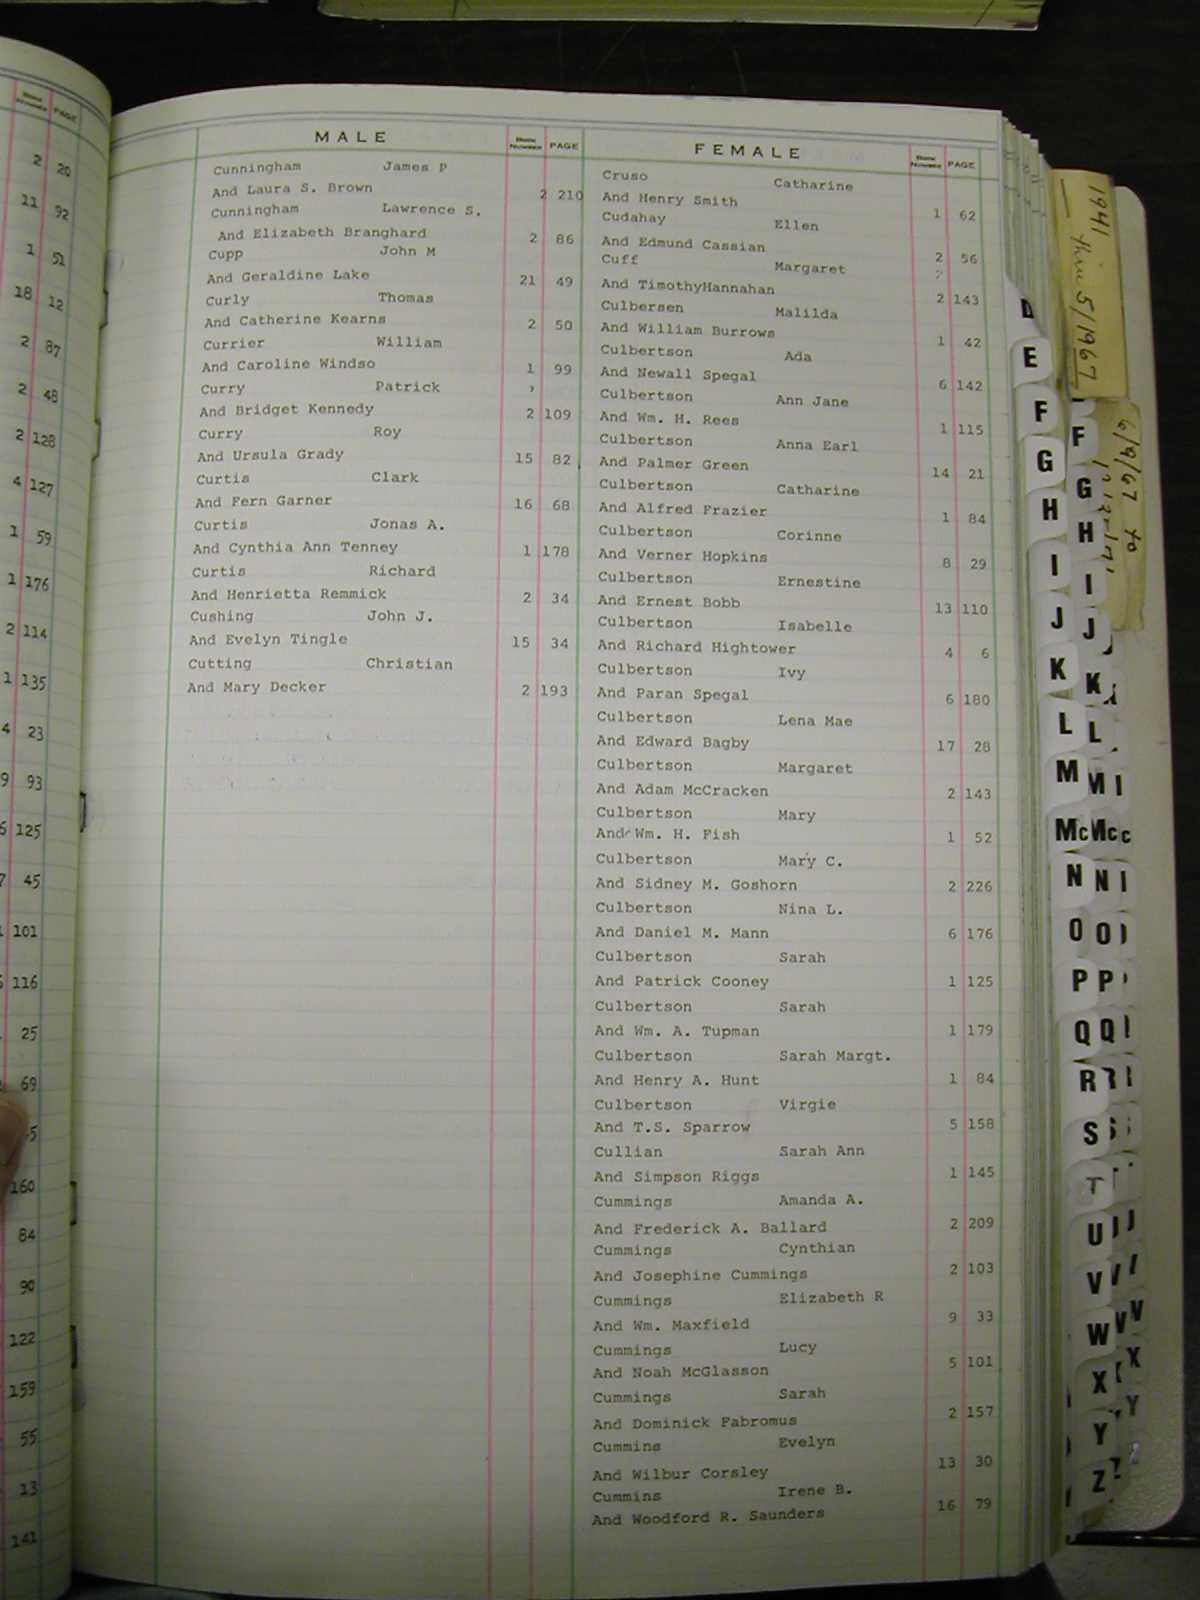 BOOK NUMBER PAGE
2 20
11 92
1 51
18 12
2 87
2 48
2 128
4 127
1 59
1 176
2 114
1 135
4 23
9 93
6 125
7 45
101
116
25
69
160
84
90
122
159
55
13
141
MALE BOOK NUMBER PAGE
Cunningham James P
And Laura S. Brown 2 210
Cunningham Lawrence S.
And Elizabeth Branghard 2 86
Cupp John M
And Geraldine Lake 21 49
Curly Thomas
And Catherine Kearns 2 50
Currier William
And Caroline Windso 1 99
Curry Patrick
And Bridget Kennedy 2 109
Curry Roy
And Ursula Grady 15 82
Curtis Clark
And Fern Garner 16 68
Curtis Jonas A.
And Cynthia Ann Tenney 1 178
Curtis Richard
And Henrietta Remmick 2 34
Cushing John J.
And Evelyn Tingle 15 34
Cutting Christian
And Mary Decker 2 193
FEMALE BOOK NUMBER PAGE
Cruso Catharine
And Henry Smith 1 62
Cudahay Ellen
And Edmund Cassian 2 56
Cuff Margaret
And TimothyHannahan 2 143
Culbersen Malilda
And William Burrows 1 42
Culbertson Ada
And Newall Spegal 6 142
Culbertson Ann Jane
And Wm. H. Rees 1 115
Culbertson Anna Earl
And Palmer Green 14 21
Culbertson Catharine
And Alfred Frazier 1 84
Culbertson Corinne
And Verner Hopkins 8 29
Culbertson Ernestine
And Ernest Bobb 13 110
Culbertson Isabelle
And Richard Hightower 4 6
Culbertson Ivy
And Paran Spegal 6 180
Culbertson Lena Mae
And Edward Bagby 17 28
Culbertson Margaret
And Adam McCracken 2 143
Culbertson Mary
And Wm. H. Fish 1 52
Culbertson Mary C.
And Sidney M. Goshorn 2 226
Culbertson Nina L.
And Daniel M. Mann 6 176
Culbertson Sarah
And Patrick Cooney 1 125
Culbertson Sarah
And Wm. A. Tupman 1 179
Culbertson Sarah Margt.
And Henry A. Hunt 1 84
Culbertson Virgie
And T.S. Sparrow 5 158
Cullian Sarah Ann
And Simpson Riggs 1 145
Cummings Amanda A.
And Frederick A. Ballard 2 209
Cummings Cynthian
And Josephine Cummings 2 103
Cummings Elizabeth R
And Wm. Maxfield 9 33
Cummings Lucy
And Noah McGlasson 5 101
Cummings Sarah
And Dominick Fabromus 2 157
Cummins Evelyn
And Wilbur Corsley 13 30
Cummins Irene B.
And Woodford R. Saunders 16 79
1941
thru 5/1967
6/9/67 to
D
E
F
G
H
I
J
K
L
M
Mc
N
O
P
Q
R
S
T
U
V
W
X
Y
Z
F
G
H
I
J
K
L
M
Mc
N
O
P
Q